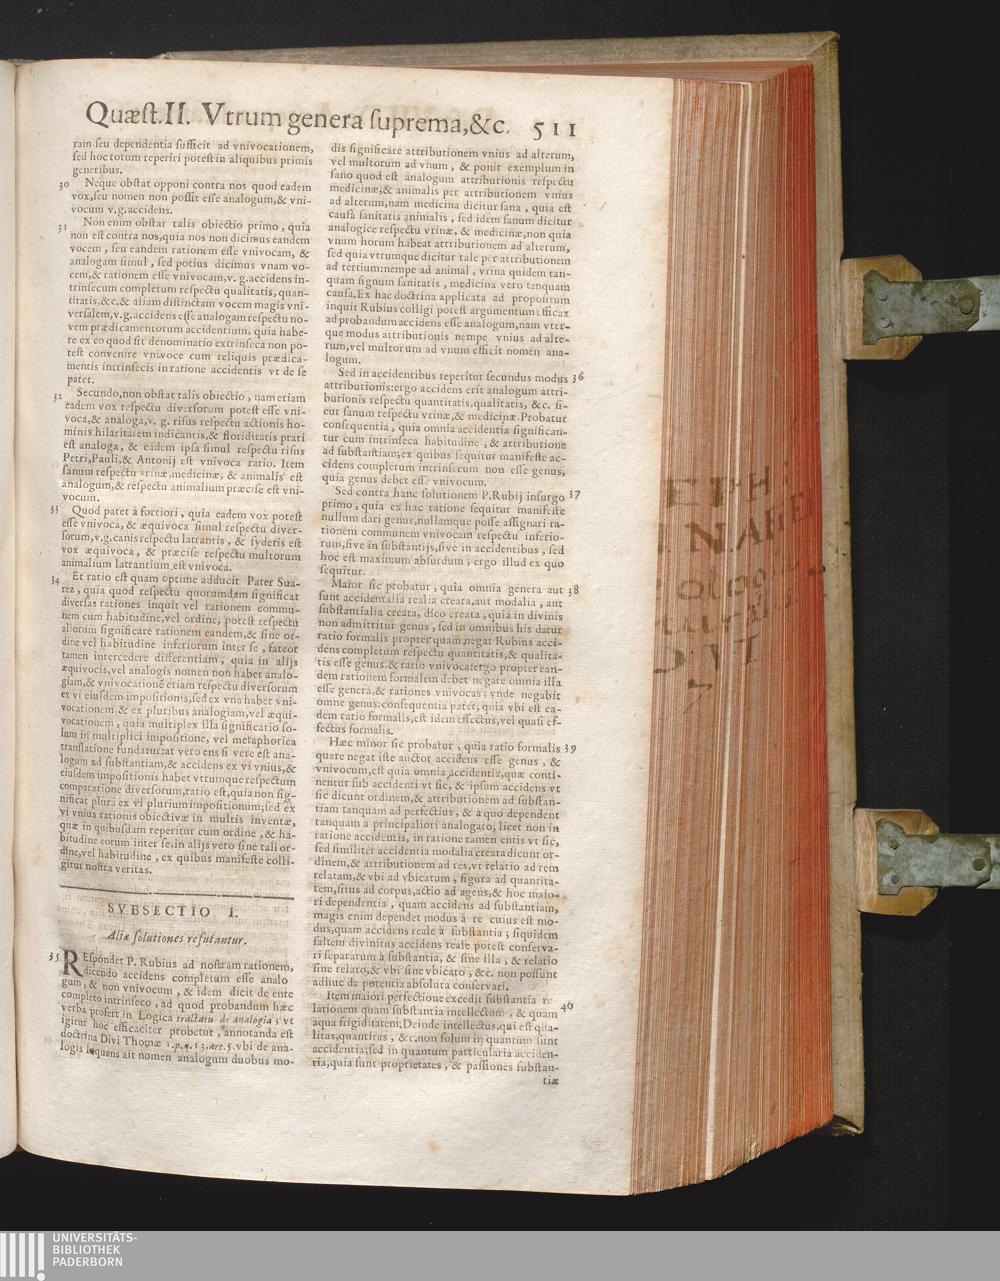 Quæst.II. Vtrum genera suprema,&c. 511
ram seu dependentia sufficit ad vnivocationem,
sed hoc totum reperiri potest in aliquibus primis
generibus.
30 Neque obstat opponi contra nos quod eadem
vox,seu nomen non possit esse analogum,& vni-
vocum v.g.accidens.
31 Non enim obstat talis obiectio primo, quia
non est contra nos,quia nos non dicimus eandem
vocem, seu eandem rationem esse vnivocam, &
analogam simul, sed potius dicimus vnam vo-
cem,& rationem esse vnivocam,v.g.accidens in-
trinsecum completum respectu qualitatis, quan-
titatis,&c.& aliam distinctam vocem magis vni-
versalem,v.g.accidens esse analogam respectu no-
vem prædicamentorum accidentium, quia habe-
re ex eo quod sit denominatio extrinseca non po-
test convenire vnivoce cum reliquis prædica-
mentis intrinsecis in ratione accidentis vt de se
patet.
32 Secundo,non obstat talis obiectio, nam etiam
eadem vox respectu diversorum potest esse vni-
voca,& analoga,v.g. risus respectu actionis ho-
minis hilaritatem indicantis,& floriditatis prati
est analoga, & eadem ipsa simul respectu risus
Petri,Pauli,& Antonij est vnivoca ratio. Item
sanum respectu vrinæ,medicinæ, & animalis est
analogum,& respectu animalium præcise est vni-
vocum.
33 Quod patet à fortiori, quia eadem vox potest
esse vnivoca, & æquivoca simul respectu diver-
sorum,v.g.canis respectu latrantis, & syderis est
vox æquivoca, & præcise respectu multorum
animalium latrantium,est vnivoca.
34 Et ratio est quam optime adducit Pater Sua-
rez, quia quod respectu quorumdam significat
diversas rationes inquit vel rationem commu-
nem cum habitudine,vel ordine, potest respectu
aliorum significare rationem eandem,& sine or-
dine vel habitudine inferiorum inter se, fateor
tamen intercedere differentiam, quia in alijs
æquivocis,vel analogis nomen non habet analo-
giam,& vnivocationẽ etiam respectu diversorum
ex vi eiusdem impositionis,sed ex vna habet vni-
vocationem & ex pluribus analogiam,vel æqui-
vocationem, quia multiplex illa significatio so-
lum in multiplici impositione, vel metaphorica
translatione fundatur:at vero ens si vere est ana-
logum ad substantiam,& accidens ex vi vnius,&
eiusdem impositionis habet vtrumque respectum
comparatione diversorum,ratio est,quia non sig-
nificat plura ex vi plurium impositionum;sed ex
vi vnius rationis obiectivæ in multis inventæ,
quæ in quibusdam reperitur cum ordine, & ha-
bitudine eorum inter se,in alijs vero sine tali or-
dine,vel habitudine, ex quibus manifeste colli-
gitur nostra veritas.
SVBSECTIO I.
Aliæ solutiones refutantur.
35 REspondet P. Rubius ad nostram rationem,
dicendo accidens completum esse analo
gum, & non vnivocum, & idem dicit de ente
completo intrinseco, ad quod probandum hæc
verba profert in Logica tractatu de analogia; vt
igitur hoc efficaciter probetur, annotanda est
doctrina Divi Thomæ 1.p.q.13.art.5.vbi de ana-
logis loquens ait nomen analogum duobus mo-
dis significare attributionem vnius ad alterum,
vel multorum ad vnum, & ponit exemplum in
sano quod est analogum attributionis respectu
medicinæ,& animalis per attributionem vnius
ad alterum,nam medicina dicitur sana, quia est
causa sanitatis animalis, sed idem sanum dicitur
analogice respectu vrinæ, & medicinæ,non quia
vnum horum habeat attributionem ad alterum,
sed quia vtrumque dicitur tale per attributionem
ad tertium:nempe ad animal, vrina quidem tan-
quam signum sanitatis, medicina vero tanquam
causa.Ex hac doctrina applicata ad propositum
inquit Rubius colligi potest argumentum efficax
ad probandum accidens esse analogum,nam vter-
que modus attributionis nempe vnius ad alte-
rum,vel multorum ad vnum efficit nomen ana-
logum.
Sed in accidentibus reperitur secundus modus 36
attributionis:ergo accidens erit analogum attri-
butionis respectu quantitatis,qualitatis, &c. si-
cut sanum respectu vrinæ,& medicinæ.Probatur
consequentia, quia omnia accidentia significan-
tur cum intrinseca habitudine, & attributione
ad substantiam;ex quibus sequitur manifeste ac-
cidens completum intrinsecum non esse genus,
quia genus debet esse vnivocum.
Sed contra hanc solutionem P.Rubij insurgo 37
primo, quia ex hac ratione sequitur manifeste
nullum dari genus,nullamque posse assignari ra-
tionem communem vnivocam respectu inferio-
rum,sive in substantijs,sive in accidentibus, sed
hoc est maximum absurdum; ergo illud ex quo
sequitur.
Maior sic probatur, quia omnia genera aut 38
sunt accidentalia realia creata,aut modalia, aut
substantialia creata, dico creata, quia in divinis
non admittitur genus, sed in omnibus his datur
ratio formalis propter quam negat Rubius acci-
dens completum respectu quantitatis,& qualita-
tis esse genus,& ratio vnivoca:ergo propter ean-
dem rationem formalem debet negare omnia illa
esse genera,& rationes vnivocas; vnde negabit
omne genus:consequentia patet, quia vbi est ea-
dem ratio formalis,est idem effectus,vel quasi ef-
fectus formalis.
Hæc minor sic probatur, quia ratio formalis 39
quare negat iste auctor accidens esse genus, &
vnivocum,est quia omnia accidentia,quæ conti-
nentur sub accidenti vt sic, & ipsum accidens vt
sic dicunt ordinem,& attributionem ad substan-
tiam tanquam ad perfectius, & à quo dependent
tanquam à principaliori analogato; licet non in
ratione accidentis, in ratione tamen entis vt sic,
sed similiter accidentia modalia creata dicunt or-
dinem,& attributionem ad res,vt relatio ad rem
relatam,& vbi ad vbicatum, figura ad quantita-
tem,situs ad corpus,actio ad agens,& hoc maio-
ri dependentia, quam accidens ad substantiam,
magis enim dependet modus à re cuius est mo-
dus,quam accidens reale à substantia; siquidem
saltem divinitus accidens reale potest conserva-
ri separatum à substantia, & sine illa, & relatio
sine relato,& vbi sine vbicato, &c. non possunt
adhuc de potentia absoluta conservari.
Item maiori perfectione excedit substantia re 40
lationem quam substantia intellectum, & quam
aqua frigiditatem:Deinde intellectus,qui est qua-
litas,quantitas, &c.non solum in quantum sunt
accidentia;sed in quantum particularia acciden-
tia,quia sunt proprietates, & passiones substan-
tiæ
UNIVERSITÄTS-
BIBLIOTHEK
PADERBORN